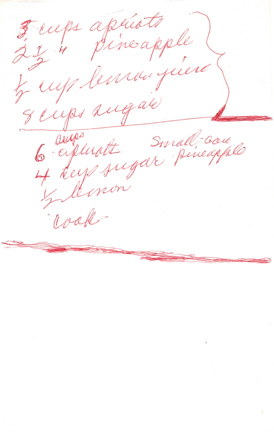 3 cups apricots
2 1/2 " pineapple
1/2 cup lemon juice
8 cups sugar
cups
6 apricott small can
4 cup sugar pineapple
1/2 lemon
cook